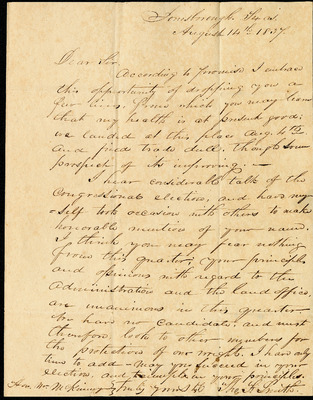 Jonesborough Texas
August 14th 1837.
Dear Sir.
According to promise I embrace
this opportunity of dropping you a
few lines. from which you may learn
that my health is at present good;
we landed at this place Aug. 4th
and find trade dull; though some
prospect of its improving. —
I hear considerable talk of the
Congressional election, and have my-
self took occasion with others to make
honorable mention of your name.
I think you may fear nothing
from this quarter; your principles
and opinions with regard to the
Administration and the land office,
are unanimous in this quarter
We have no Candidate. and must
therefore look to other members for
the protection of our rights. I have only
time to add - may you succeed in your
election. and triumph in your principles.
Truly yours &c Smith.